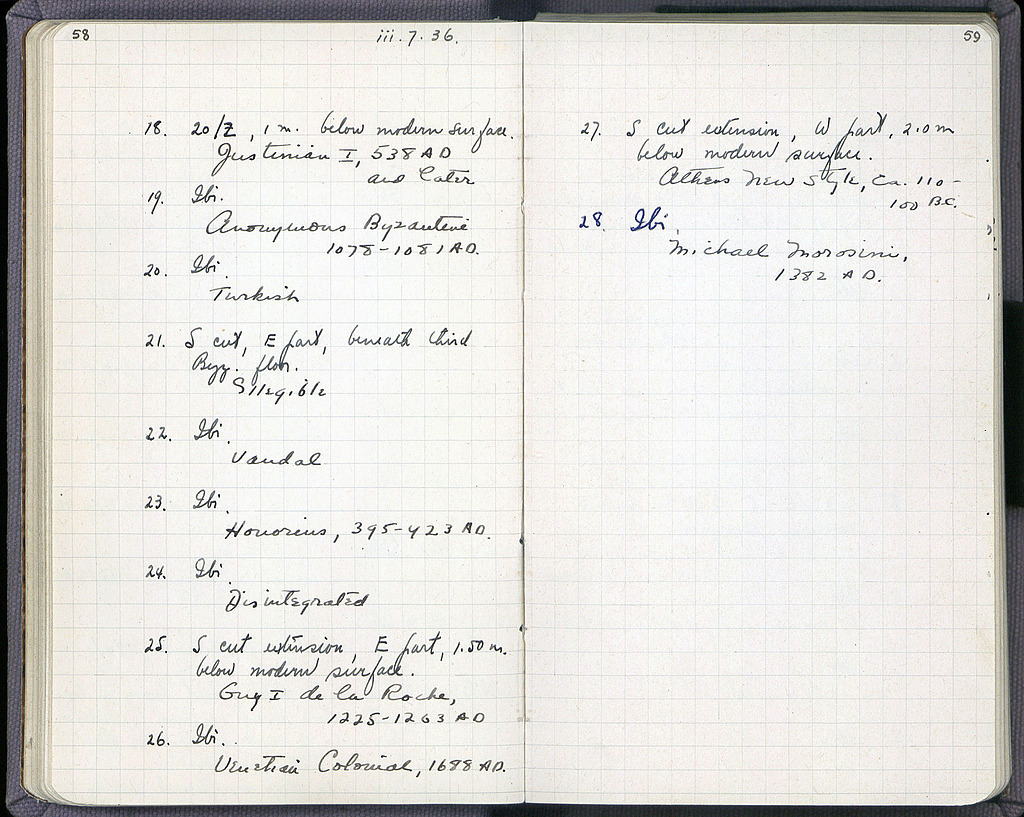 58
iii.7.36.
18. 20/Z, 1 m. below modern surface.
Justinian I, 538 AD
and later
19. Ibi.
Anonymous Byzantine
1078-1081 AD.
20. Ibi.
Turkish
21. S cut, E part, beneath third
Byz. floor.
Illegible
22. Ibi.
Vandal
23. Ibi.
Honorius, 395-423 AD.
24. Ibi.
Disintegrated
25. S cut extension, E part, 1.50 m.
below modern surface.
Guy I de la Roche,
1225-1263 AD
26. Ibi.
Venetian Colonial, 1688 AD.
59
27. S cut extension, W part, 2.0 m
below modern surface.
Athens New Style, ca. 110-
100 B.C.
28. Ibi.
Michael Morosini,
1382 AD.